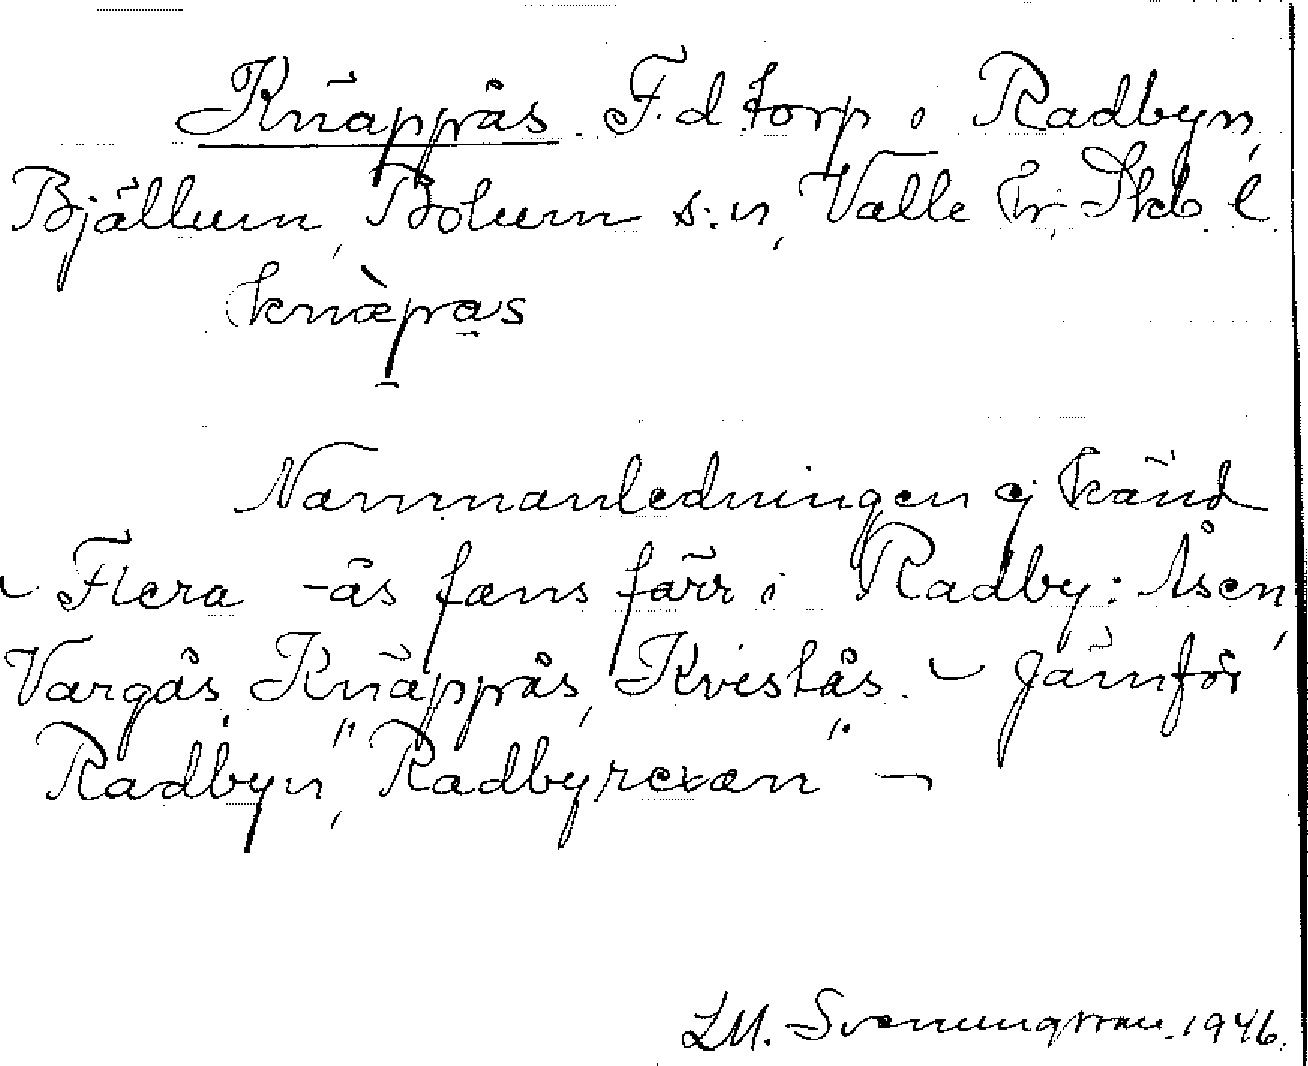 Knäppås. F.d torp i Radbyn,
Bjällum, Bolum s:n, Valle hr, Skb. l.
knæ̀pa̱s
Namnanledningen ej känd
– Flera -ås fans förr i Radby: Åsen,
Vargås, Knäppås, Kvistås. – Jämför
Radbyn, "Radbyrexan" –
LM. Svenungsson. 1946.